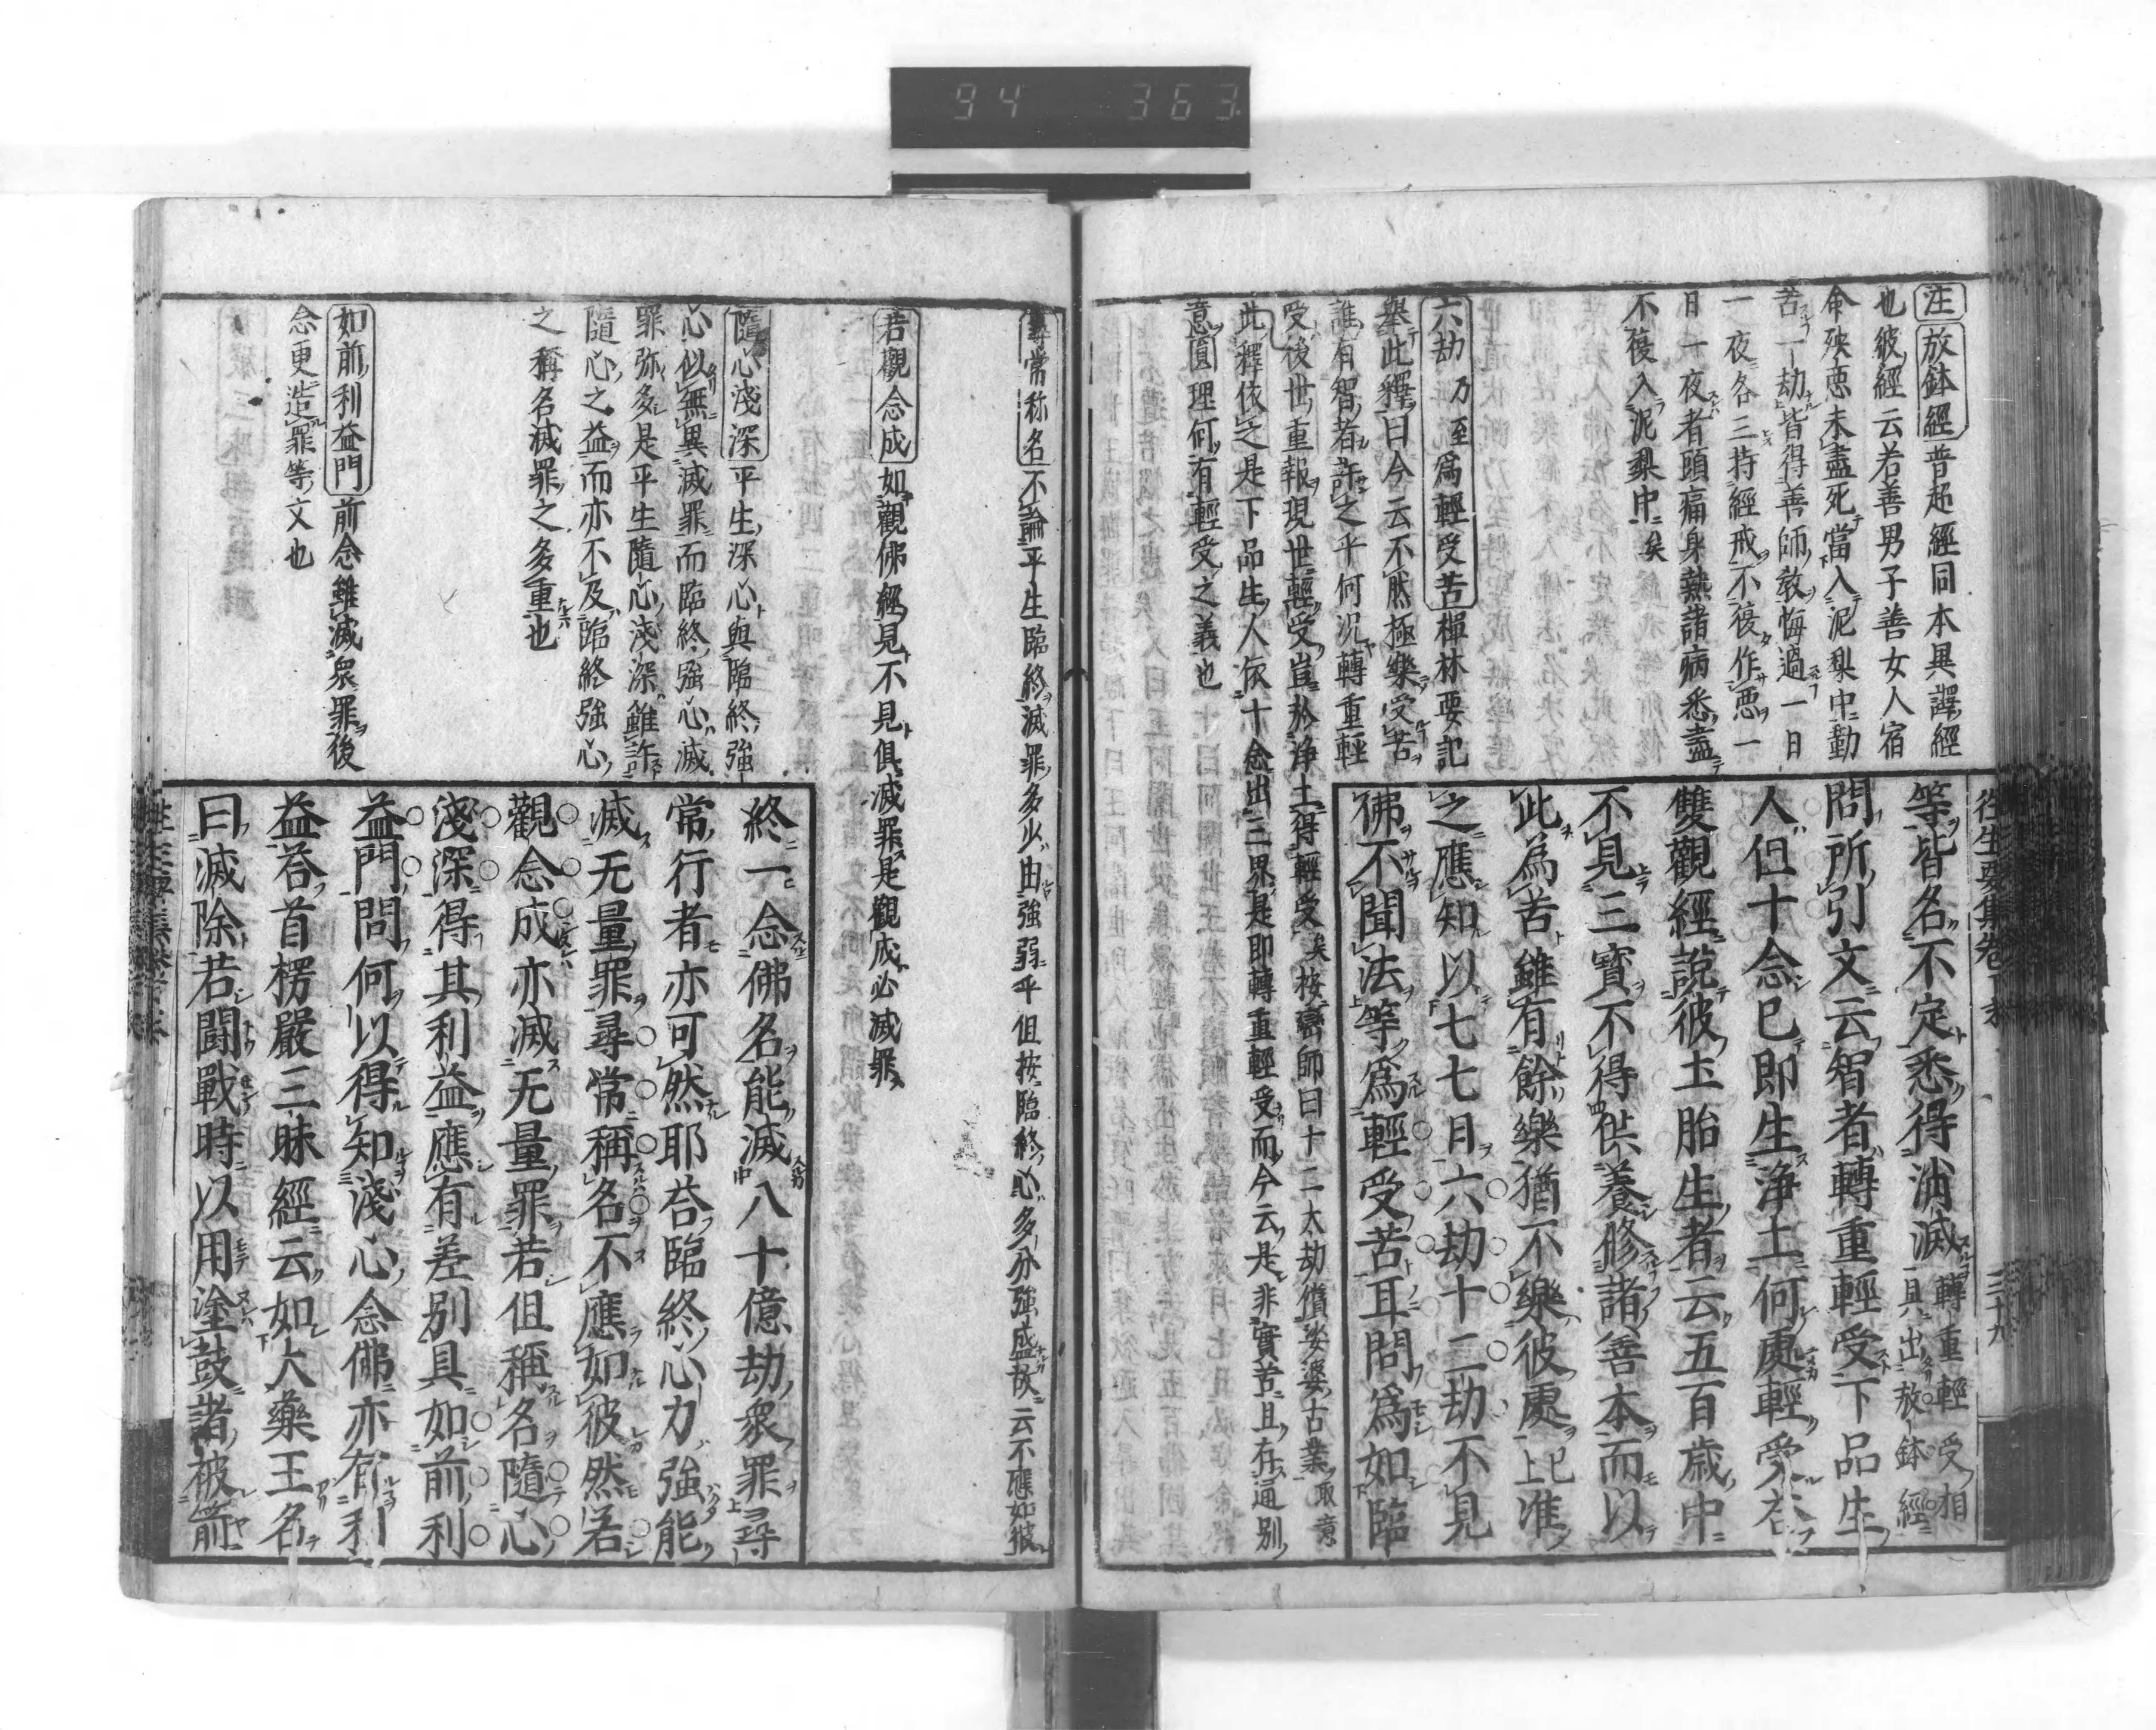 94 363
往生要集卷下末
三十九
注 放鉢經 普超經同本異譯經
也彼經云若善男子善女人宿
命殃悪未盡死當入泥梨中勤
苦一劫皆得善師教悔過一日
一夜各三持經戒不復作悪一
日一夜者頭痛身熱諸病悉盡
不復入泥梨中矣
六劫乃至爲輕受苦 樿林要記
舉此釋曰今云不然極樂受苦
誰有智者許之乎何況轉重輕
受後世重報現世輕受豈於浄土得輕受矣按鸞師曰十二大劫償娑婆古業取意
此釋依之是下品生人依十念出三界是即轉重輕受而今云是非實苦且在通別
意圓理何有輕受之義也
等皆名不定悉得消滅轉重輕受相
具出放鉢經
問所引文云智者轉重輕受下品生
人但十念已即生浄土何處輕受荅
雙觀經說彼土胎生者云五百歳中
不見三寶不得供養修諸善本而以
此為苦雖有餘樂猶不樂彼處已上准
之應知以七七日六劫十二劫不見
佛不聞法等爲輕受苦耳問爲如臨
尋常称名 不論平生臨終滅罪多少由強弱乎但按臨終心多分強盛故云不應如彼
若觀念成 如觀佛經見不見俱滅罪是觀成必滅罪
隨心淺深 平生深心與臨終強
心似無異滅罪而臨終強心滅
罪弥多是平生隨心淺深雖許
隨心之益而亦不及臨終強心
之稱名滅罪之多重也
如前利益門 前念雖滅衆罪後
念更造罪等文也
終一念佛名能滅八十億劫衆罪尋
常行者亦可然耶荅臨終心力強能
滅无量罪尋常稱名不應如彼然若
觀念成亦滅无量罪若但稱名隨心
淺深得其利益應有差別具如前利
益門問何以得知淺心念佛亦有利
益荅首楞嚴三昧經云如大藥王名
曰滅除若闘戰時以用塗鼓諸被箭